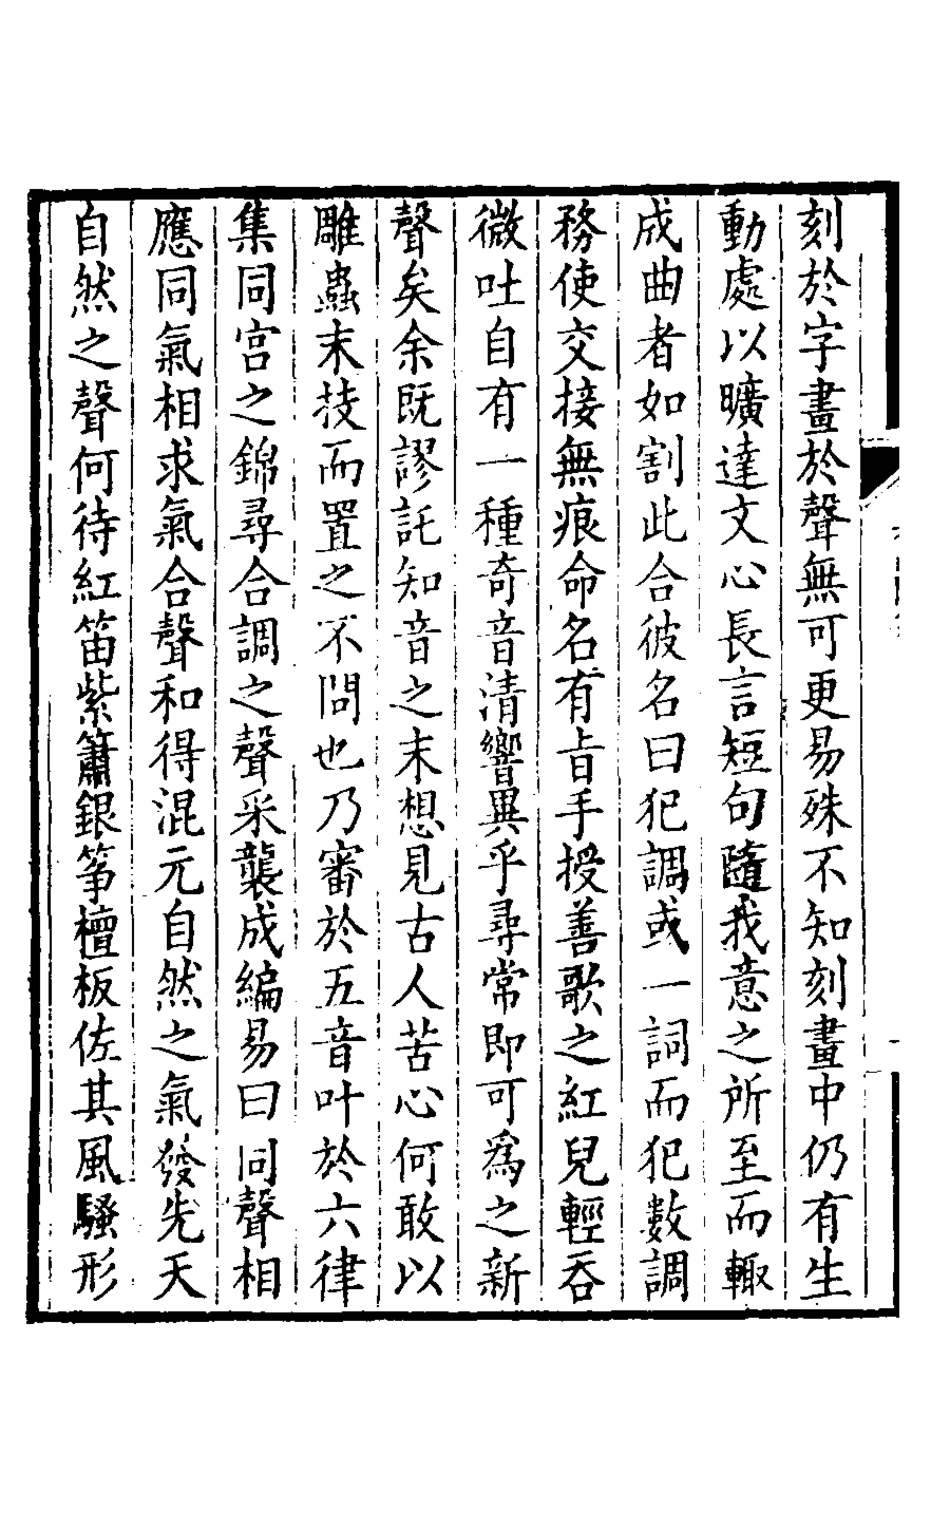 刻於字畫於聲無可更易殊不知刻畫中仍有生
動處以曠達文心長言短句隨我意之所至而輙
成曲者如割此合彼名曰犯調或一詞而犯數調
務使交接無痕命名有旨手授善歌之紅兒輕吞
微吐自有一種奇音清響異乎尋常即可爲之新
聲矣余既謬託知音之末想見古人苦心何敢以
雕蟲末技而置之不問也乃審於五音叶於六律
集同宮之錦尋合調之聲采襲成編易曰同聲相
應同氣相求氣合聲和得混元自然之氣發先天
自然之聲何待紅笛紫簫銀筝檀板佐其風騷形